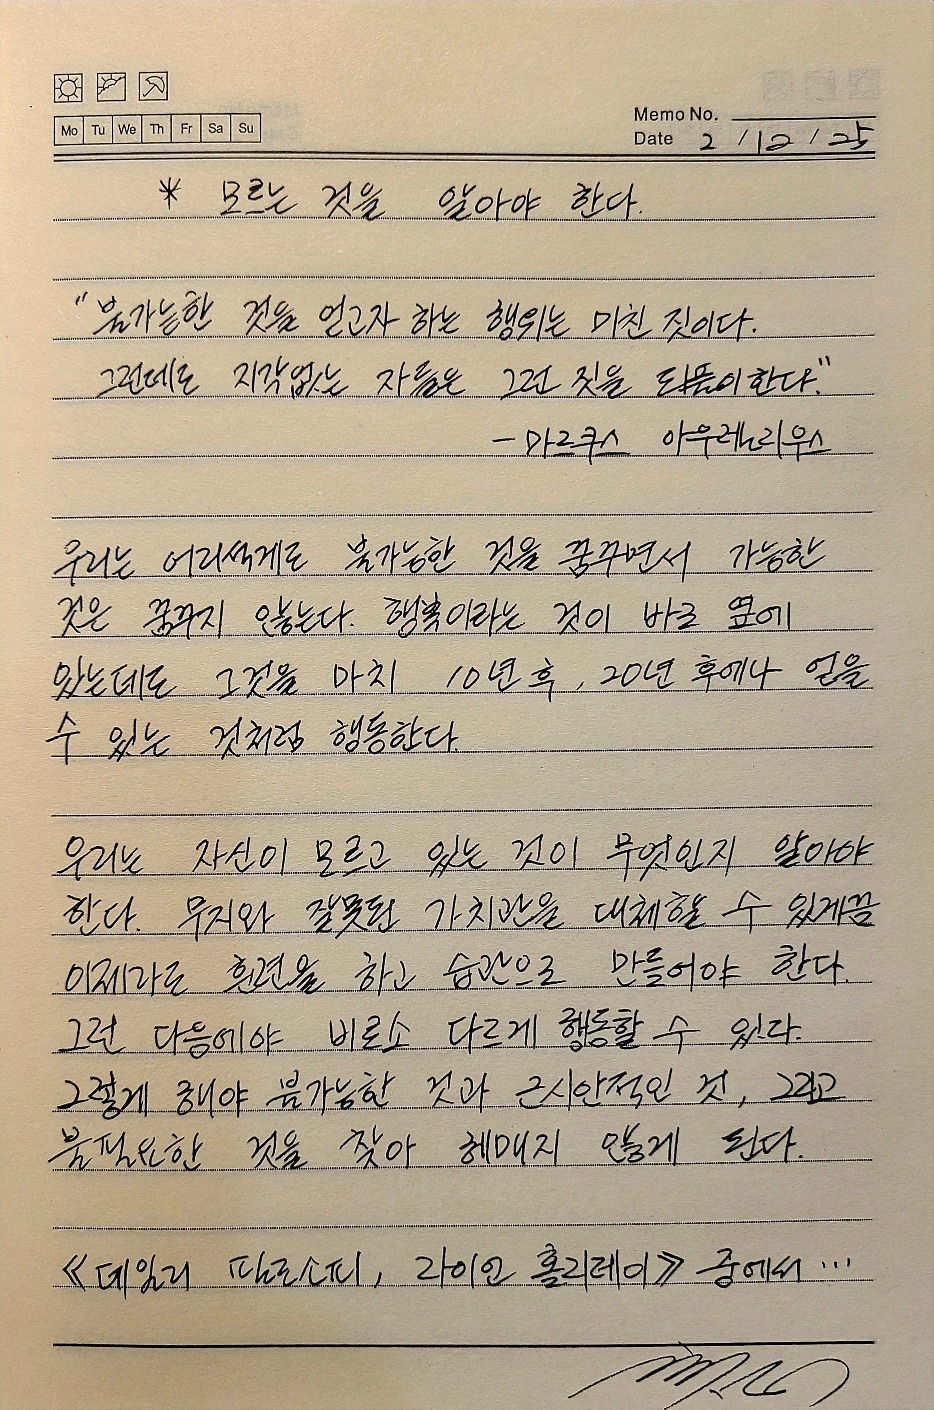 Mo Tu We Th Fr Sa Su
Memo No.
Date 2 / 12 / 25
* 모르는 것을 알아야 한다.
"불가능한 것을 얻고자 하는 행위는 미친 짓이다.
그런데도 지각없는 자들은 그런 짓을 되풀이한다."
- 마르쿠스 아우렐리우스
우리는 어리석게도 불가능한 것을 꿈꾸면서 가능한
것은 꿈꾸지 않는다. 행복이라는 것이 바로 옆에
있는데도 그것을 마치 10년 후, 20년 후에나 얻을
수 있는 것처럼 행동한다.
우리는 자신이 모르고 있는 것이 무엇인지 알아야
한다. 무지와 잘못된 가치관을 대체할 수 있게끔
이제라도 훈련을 하고 습관으로 만들어야 한다.
그런 다음에야 비로소 다르게 행동할 수 있다.
그렇게 해야 불가능한 것과 근시안적인 것, 그리고
불필요한 것을 찾아 헤매지 않게 된다.
《데일리 필로소피, 라이언 홀리데이》 중에서 ...